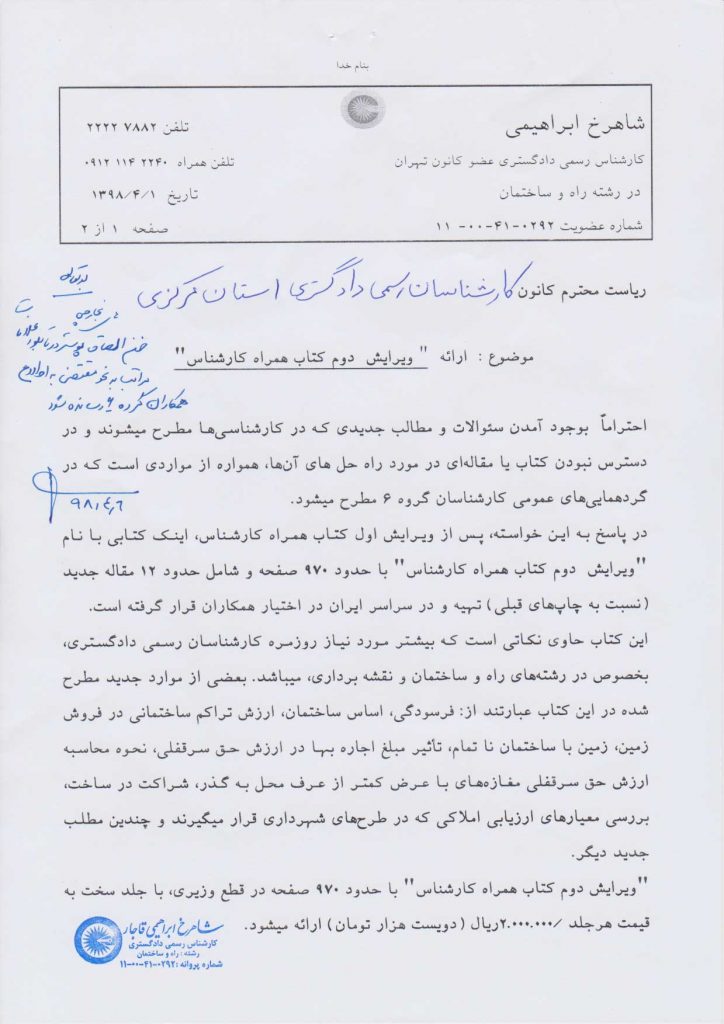 بنام خدا
شاهرخ ابراهیمی
تلفن ۲۲۲۲ ۷۸۸۲
کارشناس رسمی دادگستری عضو کانون تهران
تلفن همراه ۰۹۱۲ ۱۱۴ ۲۲۴۰
در رشته راه و ساختمان
تاریخ ۱۳۹۸/۴/۱
شماره عضویت ۰۲۹۲-۴۱-۰۰- ۱۱
صفحه ۱ از ۲
ریاست محترم کانون کارشناسان رسمی دادگستری استان مرکزی
موضوع : ارائه "ویرایش دوم کتاب همراه کارشناس"
ضمن الصاق پوستر در تابلو
مراتب به نحو مقتضی به اطلاع
همکاران گروه ۶ رسانده شود
۹۸/۴/۶
احتراماً بوجود آمدن سئوالات و مطالب جدیدی که در کارشناسی‌ها مطرح میشوند و در
دسترس نبودن کتاب یا مقاله‌ای در مورد راه حل های آن‌ها، همواره از مواردی است که در
گردهمایی‌های عمومی کارشناسان گروه ۶ مطرح میشود.
در پاسخ به این خواسته، پس از ویرایش اول کتاب همراه کارشناس، اینک کتابی با نام
"ویرایش دوم کتاب همراه کارشناس" با حدود ۹۷۰ صفحه و شامل حدود ۱۲ مقاله جدید
(نسبت به چاپ‌های قبلی) تهیه و در سراسر ایران در اختیار همکاران قرار گرفته است.
این کتاب حاوی نکاتی است که بیشتر مورد نیاز روزمره کارشناسان رسمی دادگستری،
بخصوص در رشته‌های راه و ساختمان و نقشه برداری، میباشد. بعضی از موارد جدید مطرح
شده در این کتاب عبارتند از: فرسودگی، اساس ساختمان، ارزش تراکم ساختمانی در فروش
زمین، زمین با ساختمان نا تمام، تأثیر مبلغ اجاره بها در ارزش حق سرقفلی، نحوه محاسبه
ارزش حق سرقفلی مغازه‌های با عرض کمتر از عرف محل به گذر، شراکت در ساخت،
بررسی معیارهای ارزیابی املاکی که در طرح‌های شهرداری قرار میگیرند و چندین مطلب
جدید دیگر.
"ویرایش دوم کتاب همراه کارشناس" با حدود ۹۷۰ صفحه در قطع وزیری، با جلد سخت به
قیمت هرجلد /۲.۰۰۰.۰۰۰ریال (دویست هزار تومان) ارائه میشود.
شاهرخ ابراهیمی قاجار
کارشناس رسمی دادگستری
رشته : راه و ساختمان
شماره پروانه : ۰۲۹۲-۴۱-۰۰-۱۱